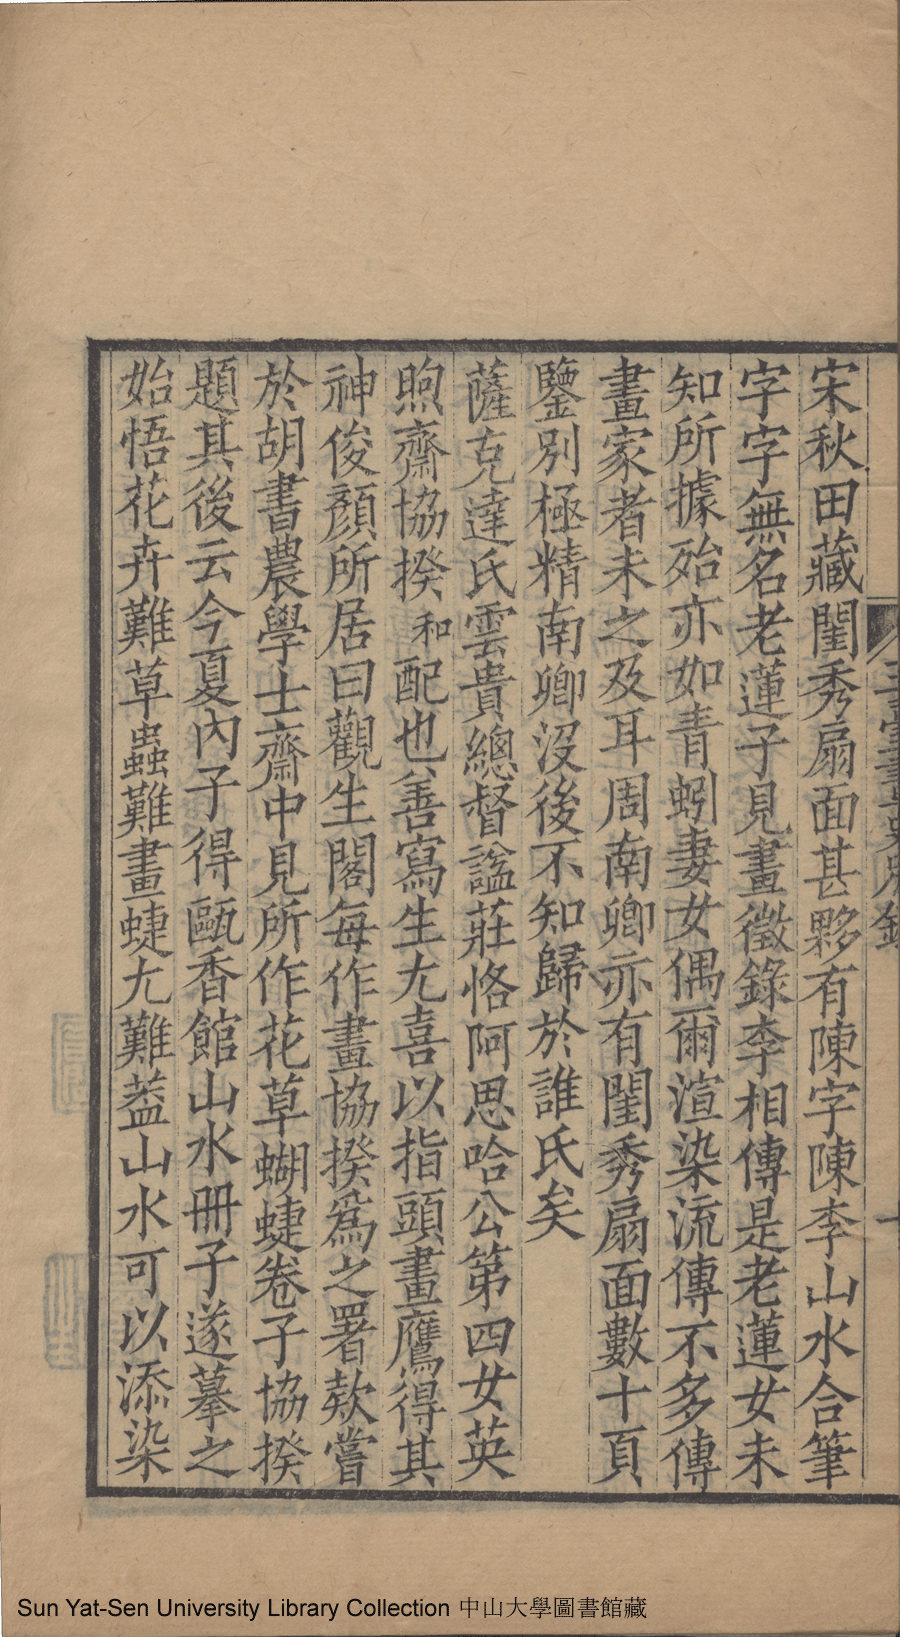 宋秋田藏閨秀扇面甚夥有陳字陳李山水合筆
字字無名老蓮子見畫徵錄李相傳是老蓮女未
知所據殆亦如青蚓妻女偶爾渲染流傳不多傳
畫家者未之及耳周南卿亦有閨秀扇面數十頁
鑒別極精南卿沒後不知歸於誰氏矣
薩克達氏雲貴總督謚莊恪阿思哈公第四女英
煦齋協揆和配也善寫生尤喜以指頭畫鷹得其
神俊顏所居曰觀生閣每作畫協揆為之署欵嘗
於胡書農學士齋中見所作花草蝴蜨卷子協揆
題其後云今夏內子得甌香館山水冊子遂摹之
始悟花卉難草蟲難畫蜨尤難葢山水可以添染
Sun Yat-Sen University Library Collection 中山大學圖書館藏